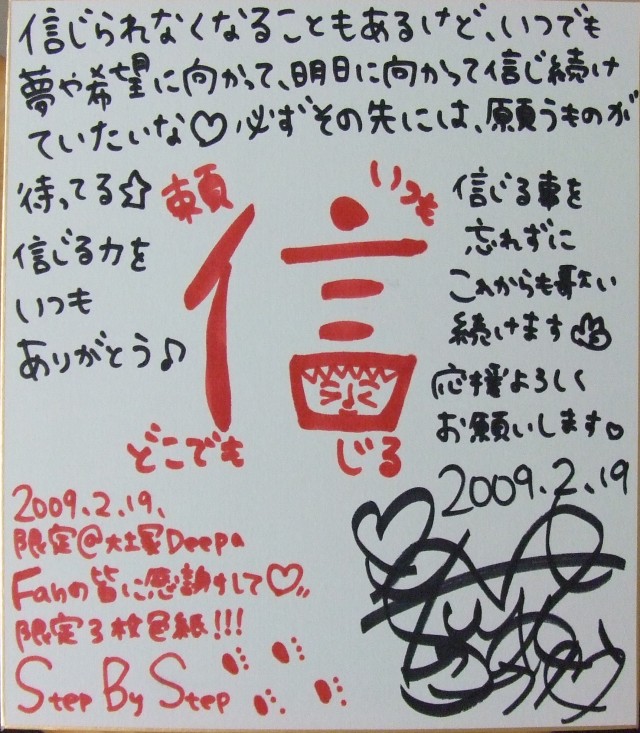 信じられなくなることもあるけど、いつでも
夢や希望に向かって、明日に向かって信じ続け
ていたいな♡必ずその先には、願うものが
待ってる☆
信じる力を
いつも
ありがとう♪
頼
いつも
信
どこでも
じる
信じる事を
忘れずに
これからも歌い
続けます
応援よろしく
お願いします♡
2009.2.19
2009.2.19.
限定@大塚Deepa
Fanの皆に感謝して♡〃
限定3枚色紙!!!
Step By Step